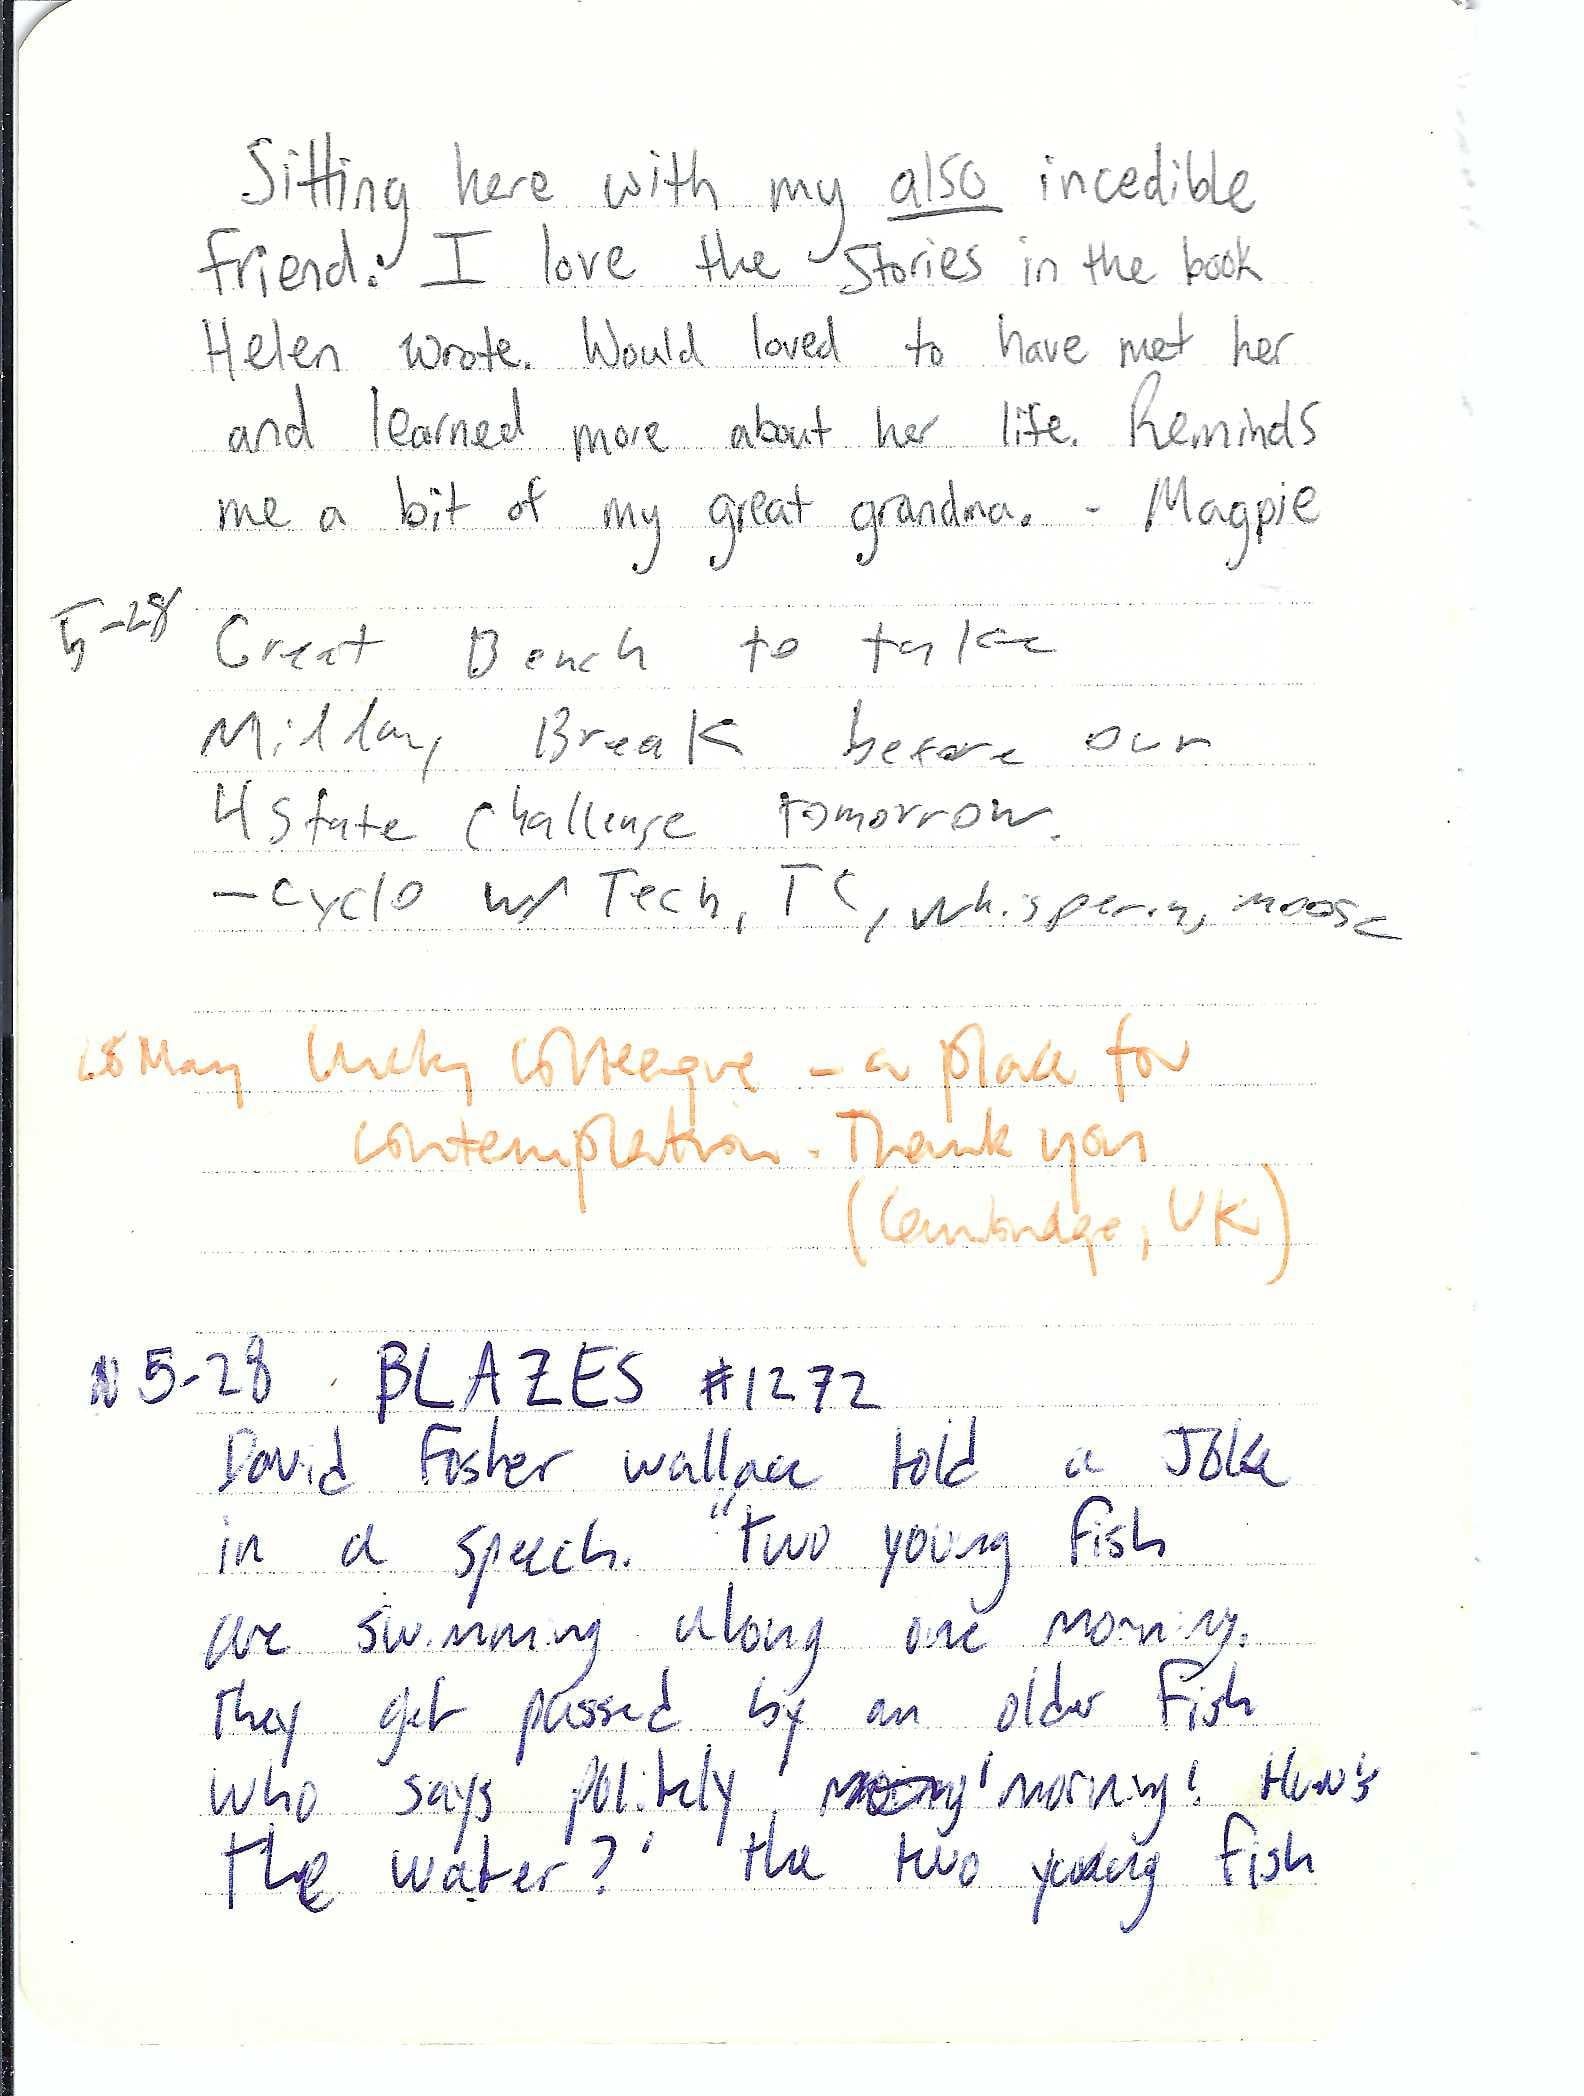 Sitting here with my also incedible
friend. I love the stories in the book
Helen wrote. Would loved to have met her
and learned more about her life. Reminds
me a bit of my great grandma. - Magpie
5-28 Great Bench to take
Midday Break before our
4 State Challenge tomorrow.
- Cyclo w/ Tech, TC, whispering moose
28 May Lucky colleague - a place for
contemplation. Thank you
(Cambridge, UK)
5-28 BLAZES #1272
David Foster wallace told a Joke
in a speech. "two young fish
are swimming along one morning.
They get passed by an older fish
who says politely, 'morning! How's
the water?' the two young fish